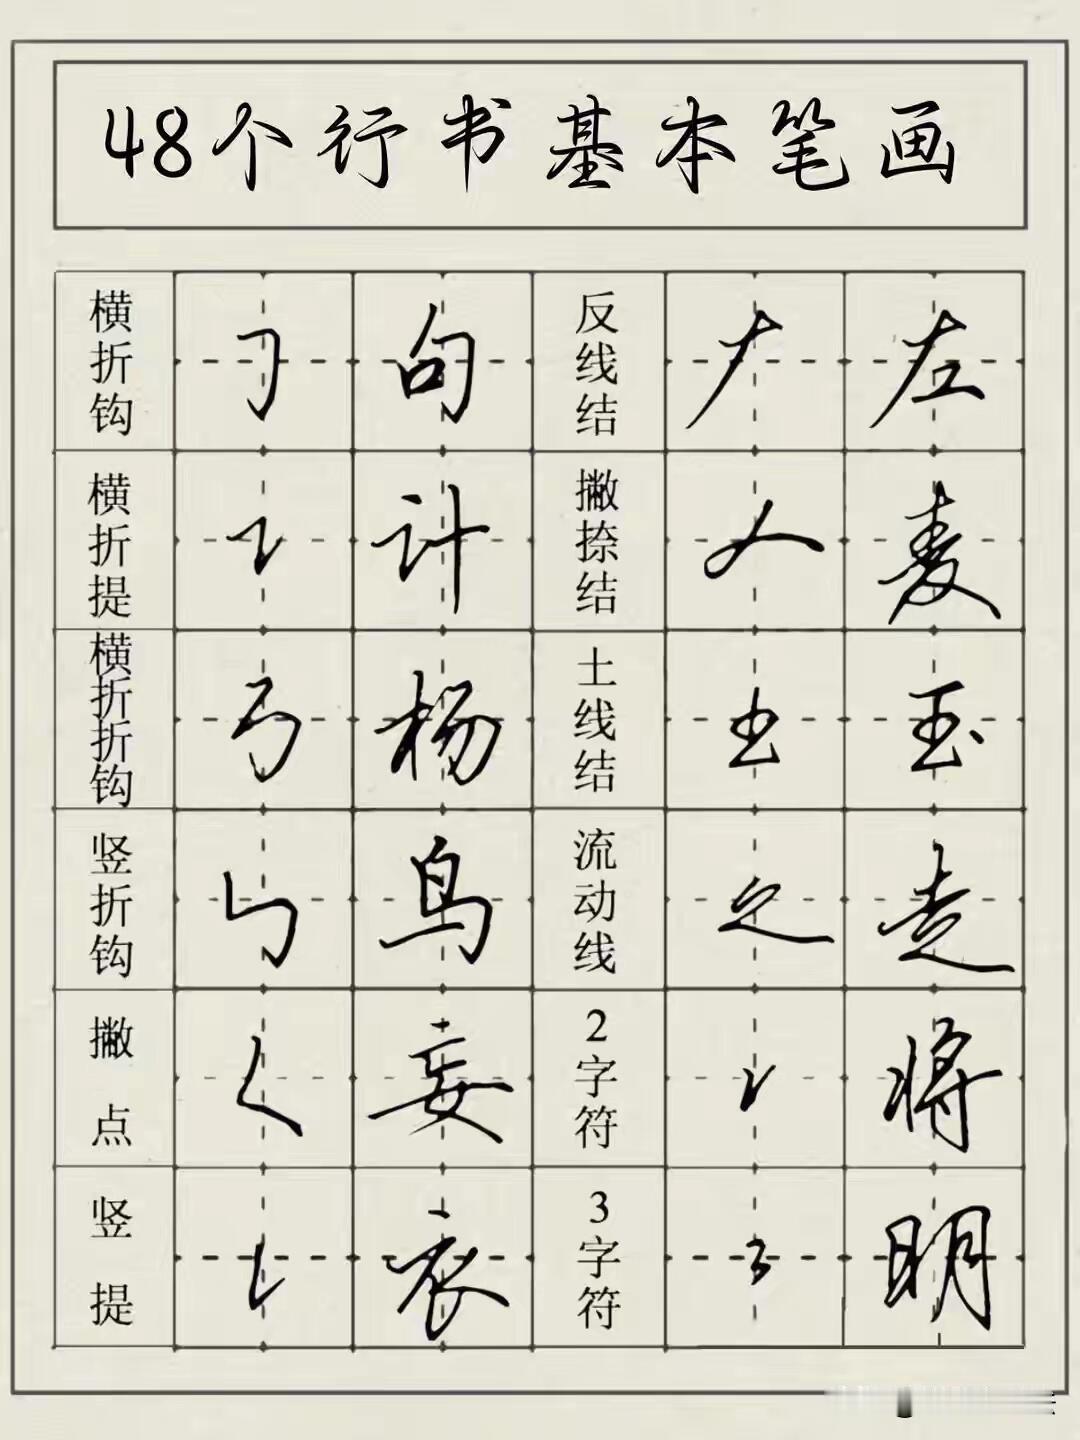 48个行书基本笔画
横折钩 ㇆ 句 反线结 左
横折提 ㇊ 计 撇捺结 麦
横折折钩 ㇡ 杨 土线结 玉
竖折钩 ㇉ 鸟 流动线 走
撇点 ㇛ 妄 2字符 将
竖提 ㇙ 衣 3字符 明